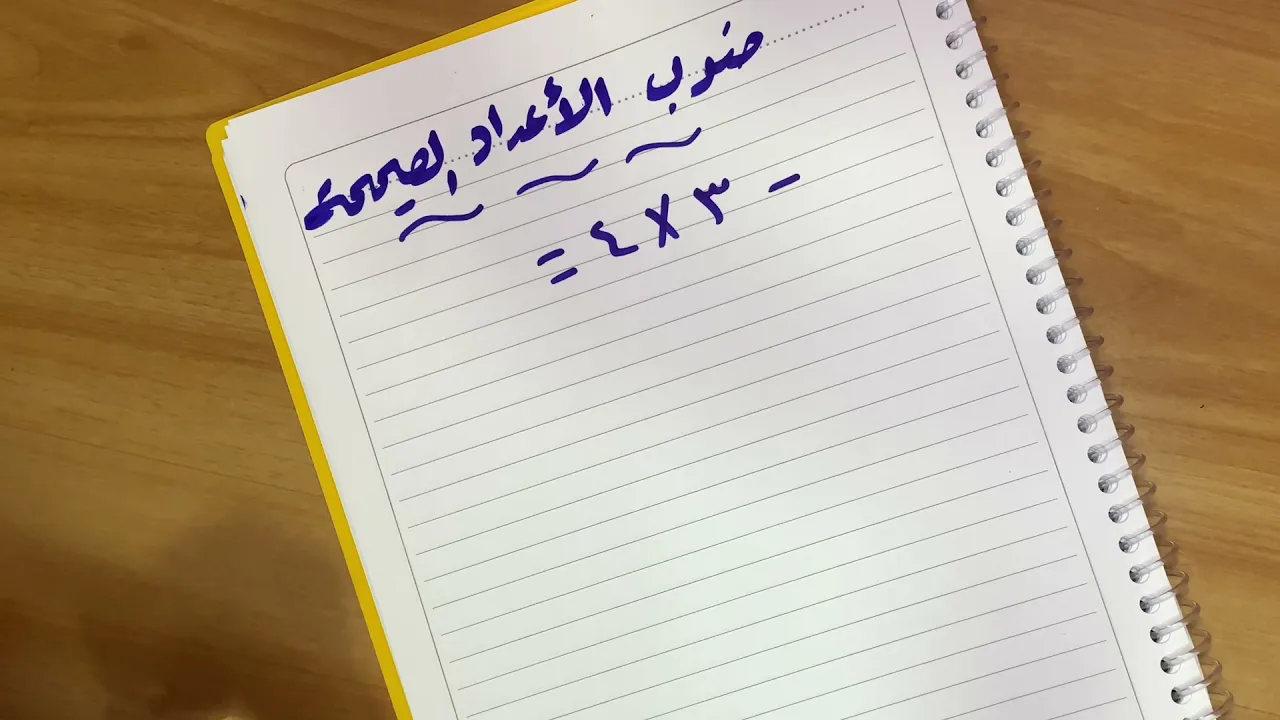 ضرب الأعداد الصحيحة
- ٣ × ٤ =